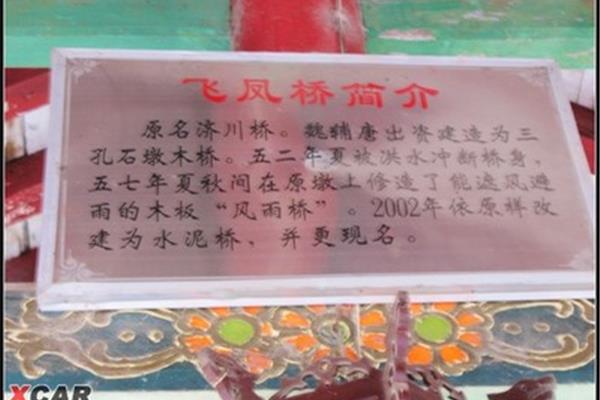 飞凤桥简介
原名济川桥。魏辅唐出资建造为三
孔石墩木桥。五二年夏被洪水冲断桥身，
五七年夏秋间在原墩上修造了能遮风避
雨的木板“风雨桥”。2002年依原样改
建为水泥桥，并更现名。
XCAR